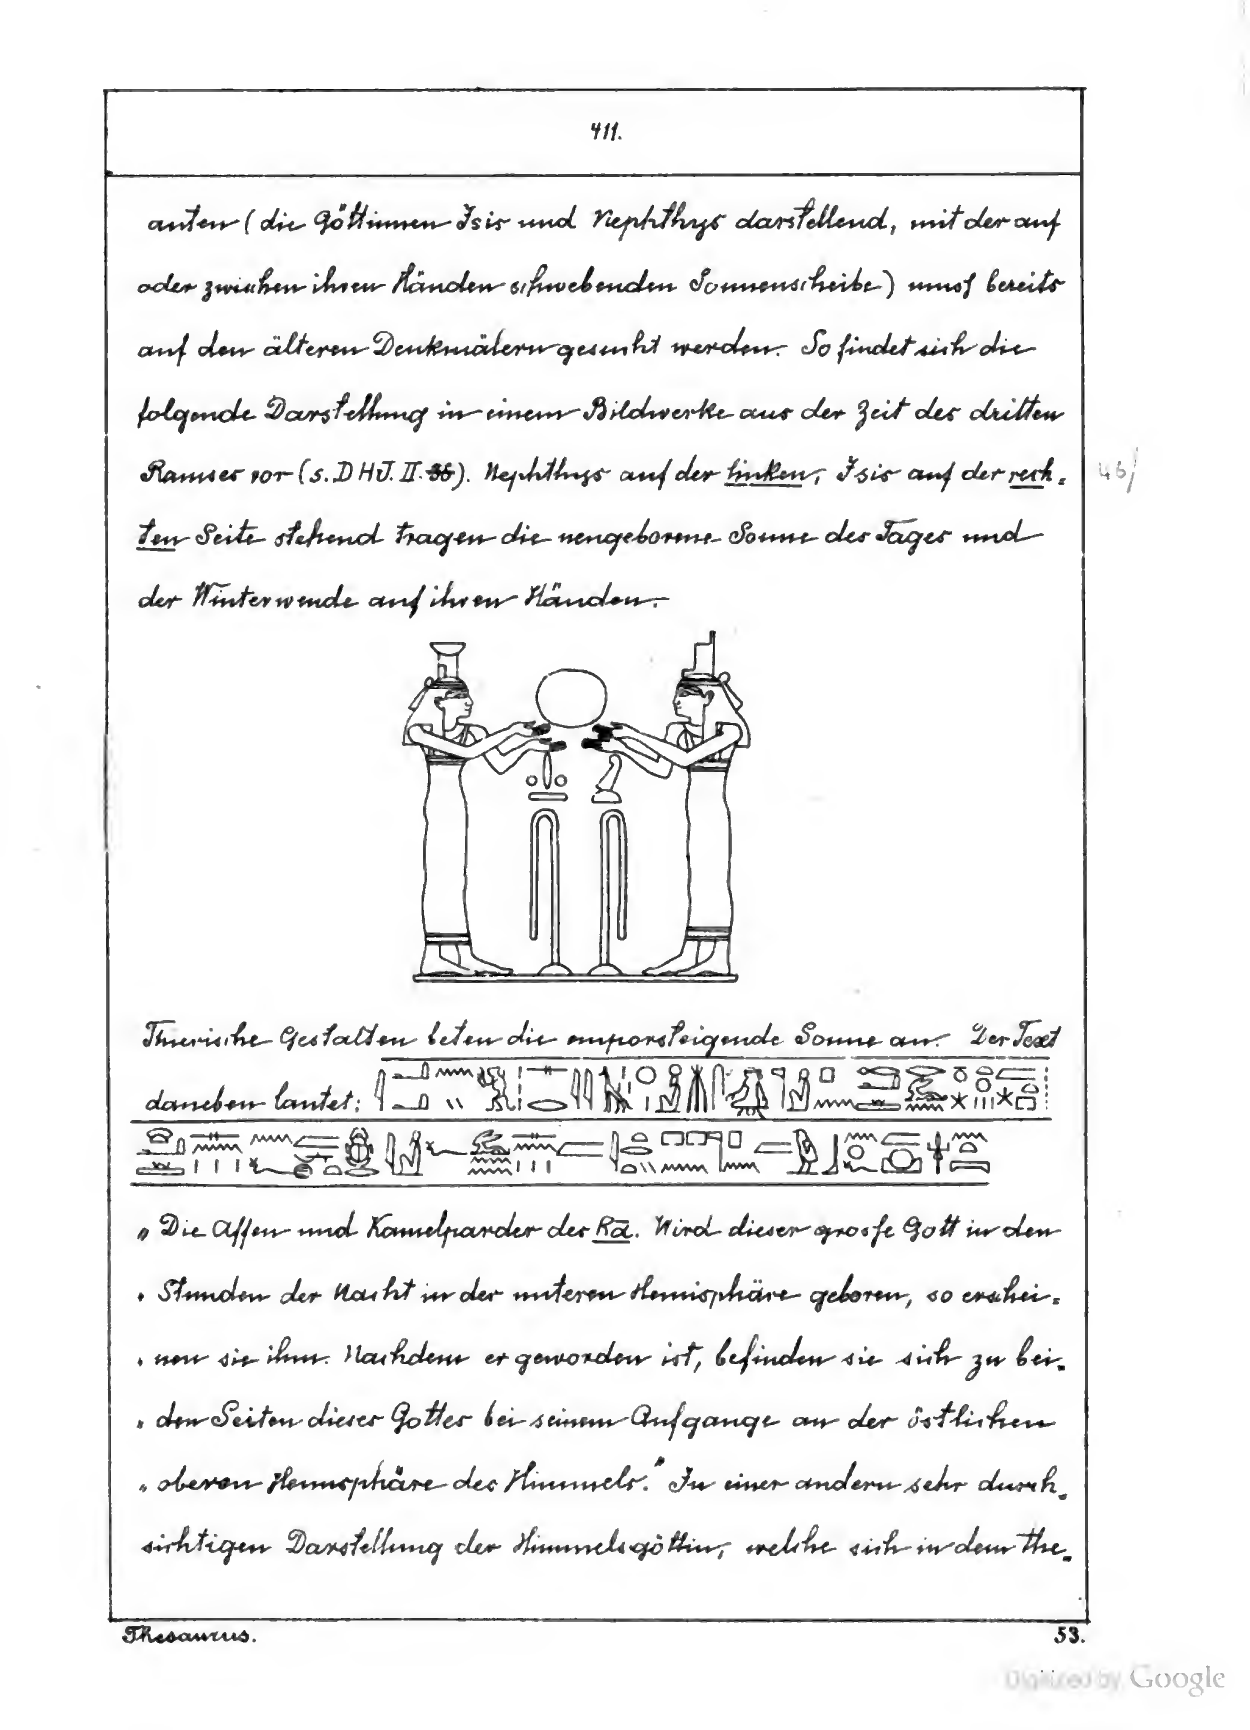 411.
anten (die Göttinnen Isis und Nephthys darstellend, mit der auf
oder zwischen ihren Händen schwebenden Sonnenscheibe) muss bereits
auf den älteren Denkmälern gesucht werden. So findet sich die
folgende Darstellung in einem Bildwerke aus der Zeit des dritten
Ramses vor (s. DHJ. II. 36). Nephthys auf der linken, Isis auf der rech= 46/
ten Seite stehend tragen die neugeborene Sonne des Tages und
der Winterwende auf ihren Händen.
Thierische Gestalten beten die emporsteigende Sonne an. Der Text
daneben lautet:
„Die Affen und Kamelparder des Rā. Wird dieser grosse Gott in den
„Stunden der Nacht in der unteren Hemisphäre geboren, so erschei=
„nen sie ihm. Nachdem er geworden ist, befinden sie sich zu bei=
„den Seiten dieses Gottes bei seinem Aufgange an der östlichen
„oberen Hemisphäre des Himmels." In einer andern sehr durch=
sichtigen Darstellung der Himmelsgöttin, welche sich in dem The=
Thesaurus. 53.
Digitized by Google